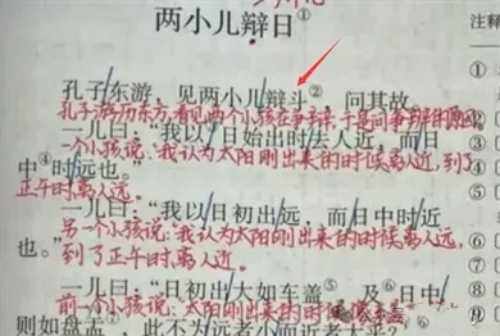 两小儿辩日①
注释
孔子东游,见两小儿辩斗②,问其故
孔子游历东方,看见两个小孩在争辩,于是问争辩的原因。
一儿曰:“我以日始出时去人近,而日
一个小孩说:“我认为太阳刚出来的时候离人近,到了
中④时远也。
正午时离人远。
一儿曰:“我以日初出远,而日中时近
另一个小孩说:“我认为太阳刚出来的时候离人远,
也。”
到了正午时离人近。
一儿曰:“日初出大如车盖⑤,及⑥日中
前一个小孩说:“太阳刚出来的时
则如盘盂,此不为远者小而近者大
①
②
③
④
⑤
⑥
⑦
⑧